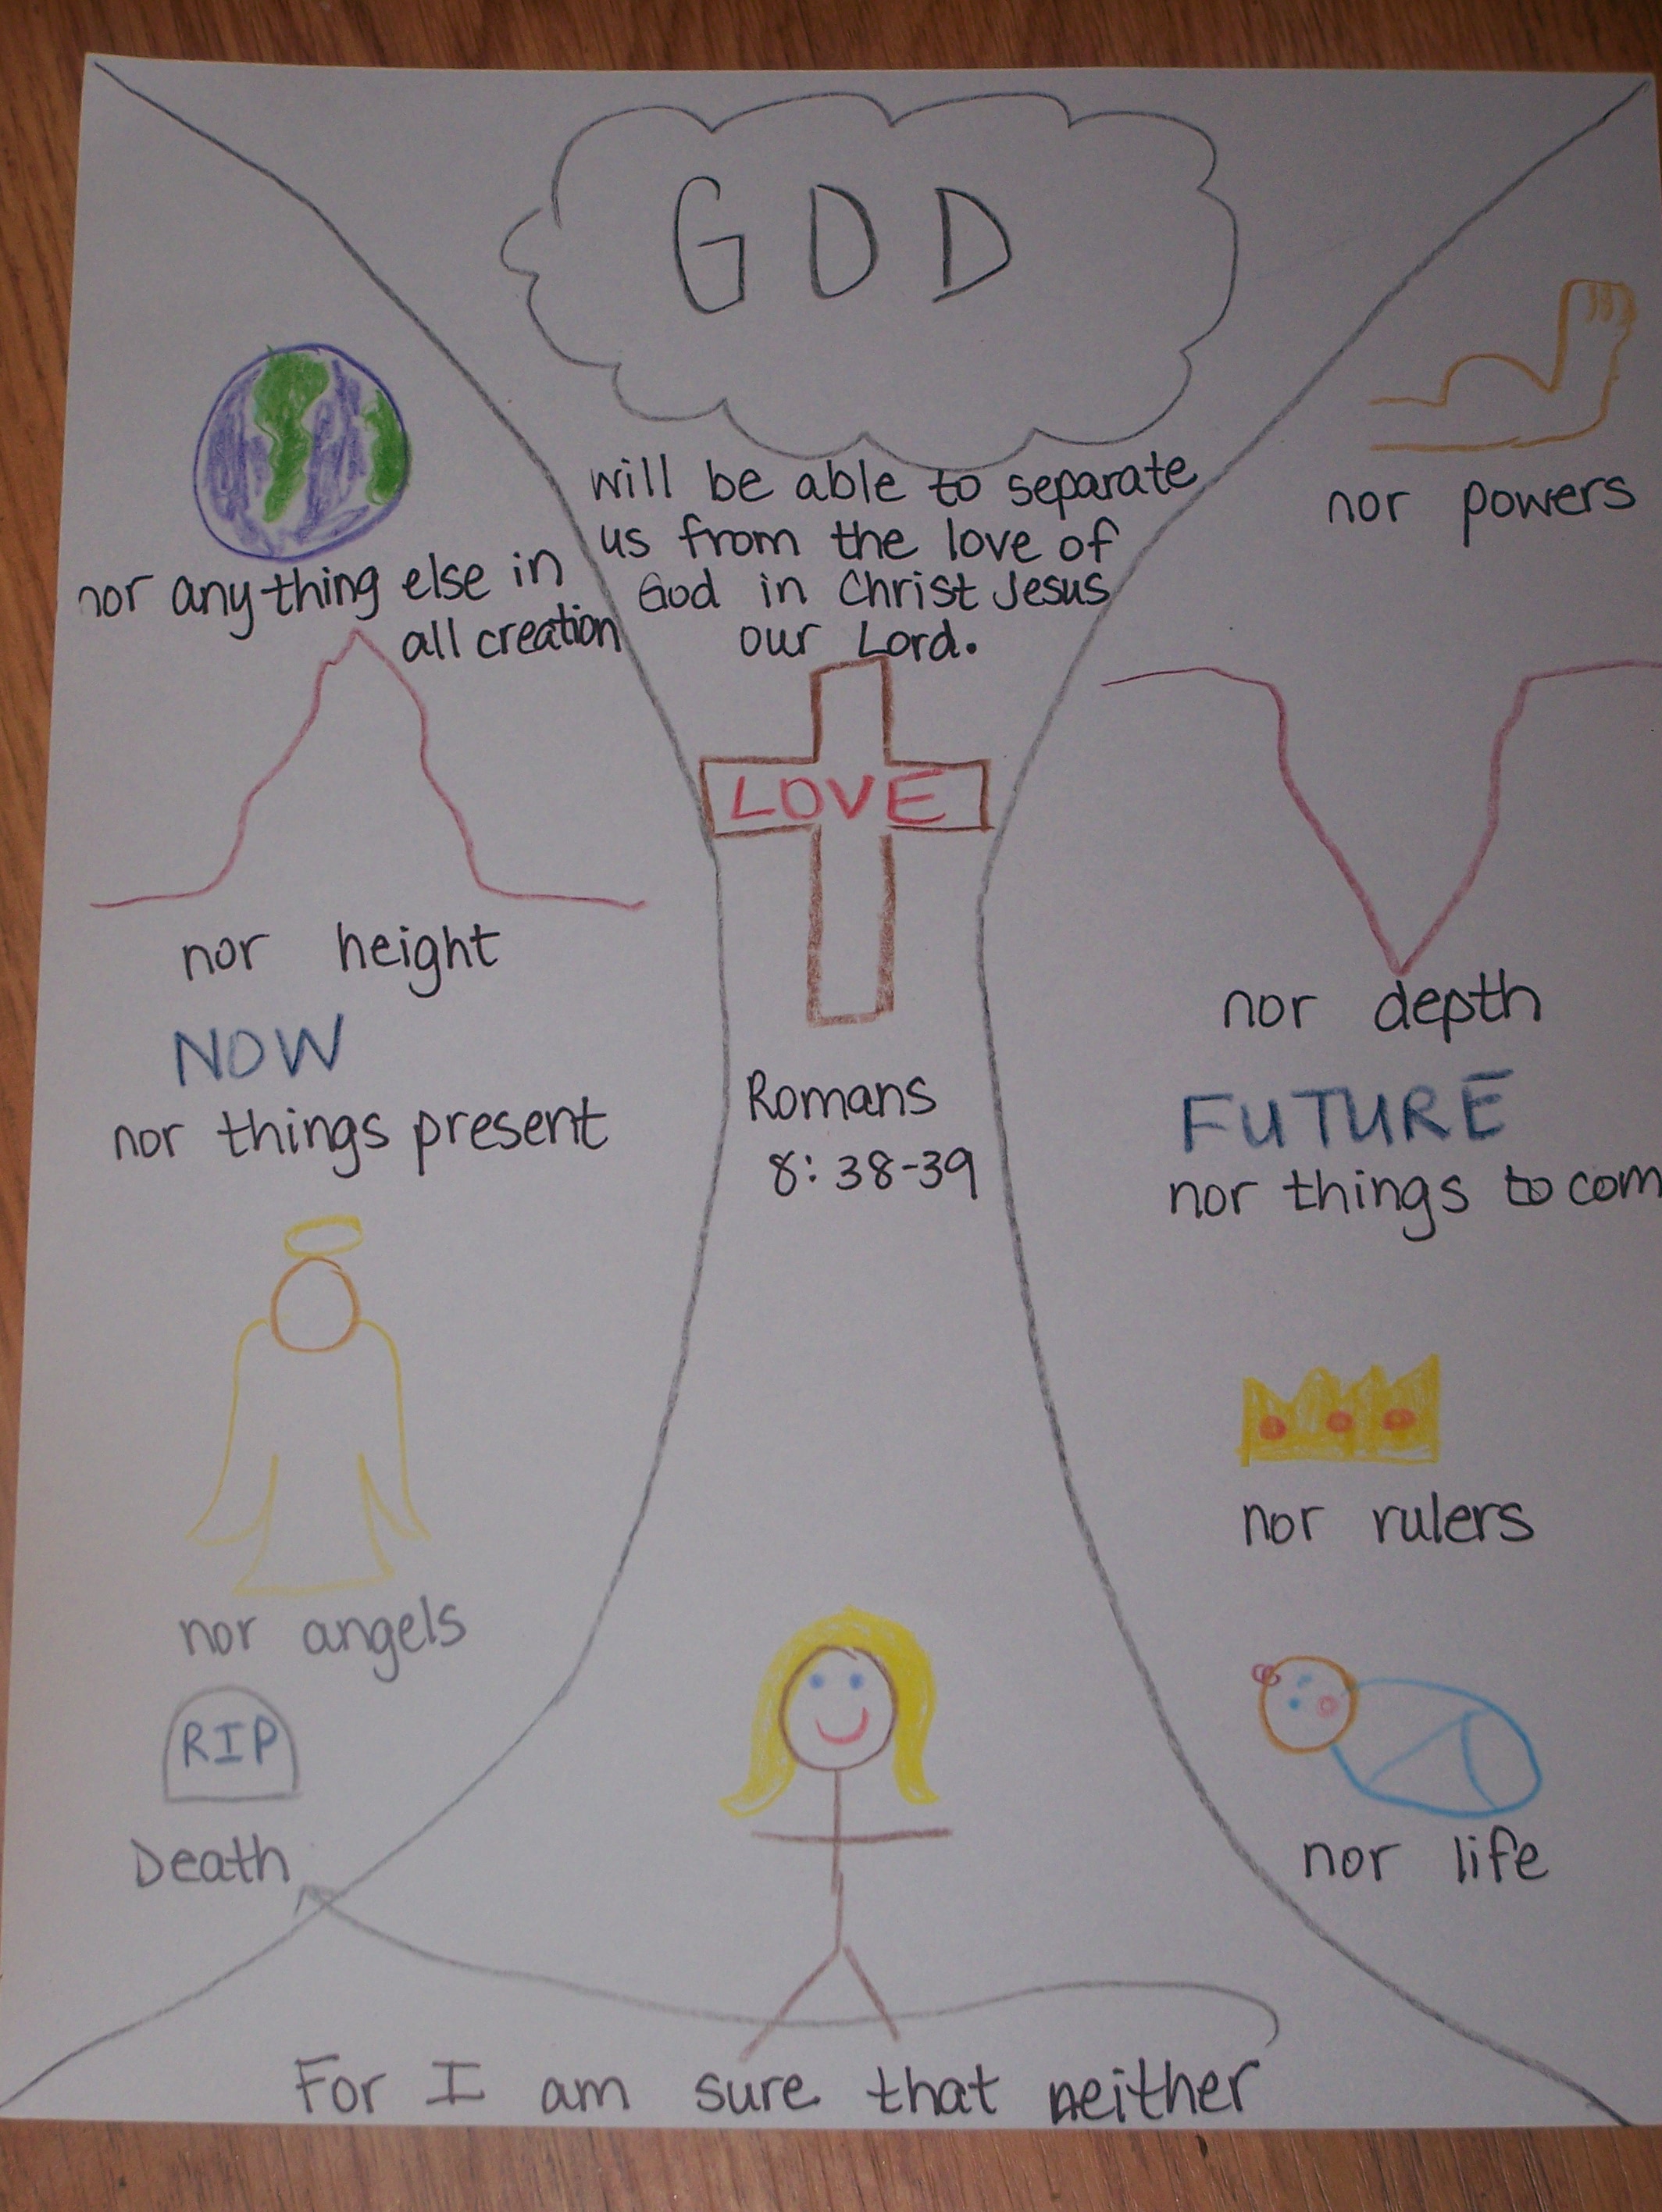 GOD
will be able to separate
us from the love of
God in Christ Jesus
our Lord.
LOVE
Romans
8:38-39
nor anything else in
all creation
nor powers
nor height
nor depth
NOW
nor things present
FUTURE
nor things to com
nor angels
nor rulers
RIP
Death
nor life
For I am sure that neither